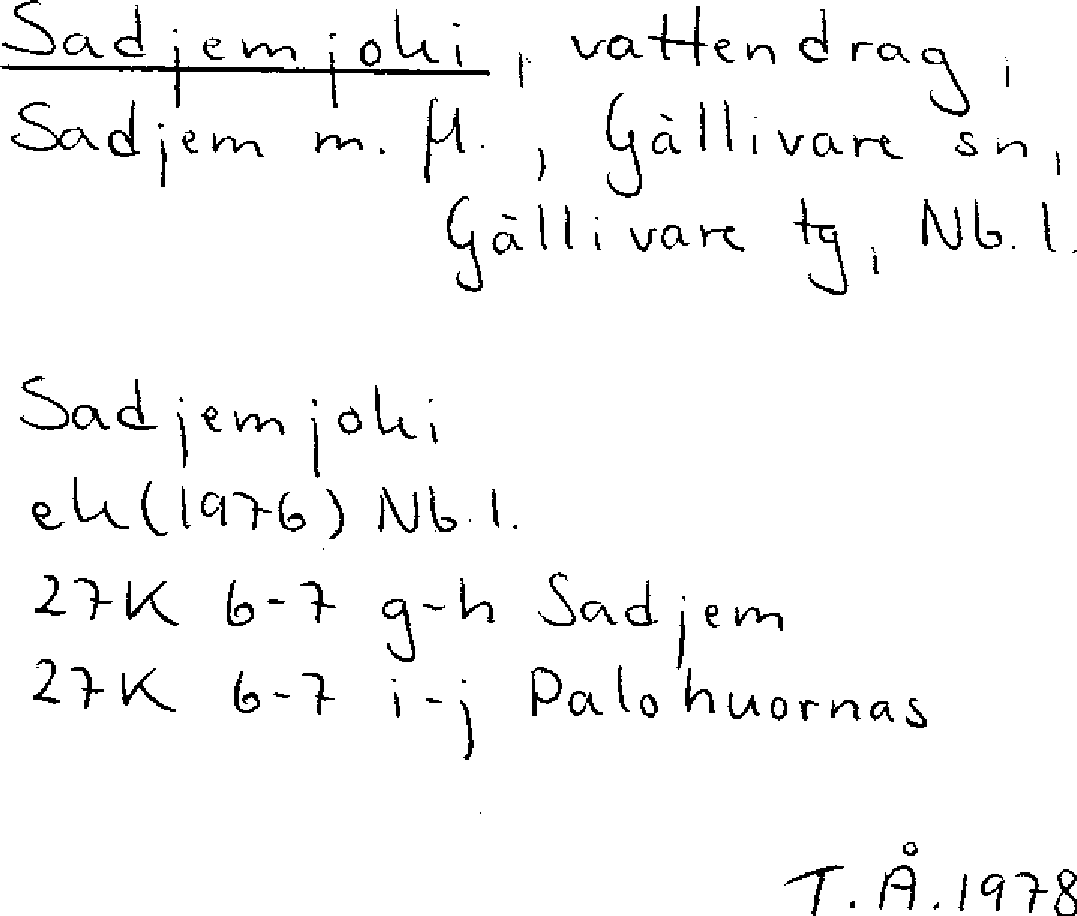 Sadjemjoki, vattendrag,
Sadjem m. fl., Gällivare sn,
Gällivare tg, Nb. l.
Sadjemjoki
ek (1976) Nb. l.
27K 6-7 g-h Sadjem
27K 6-7 i-j Palohuornas
T. Å. 1978